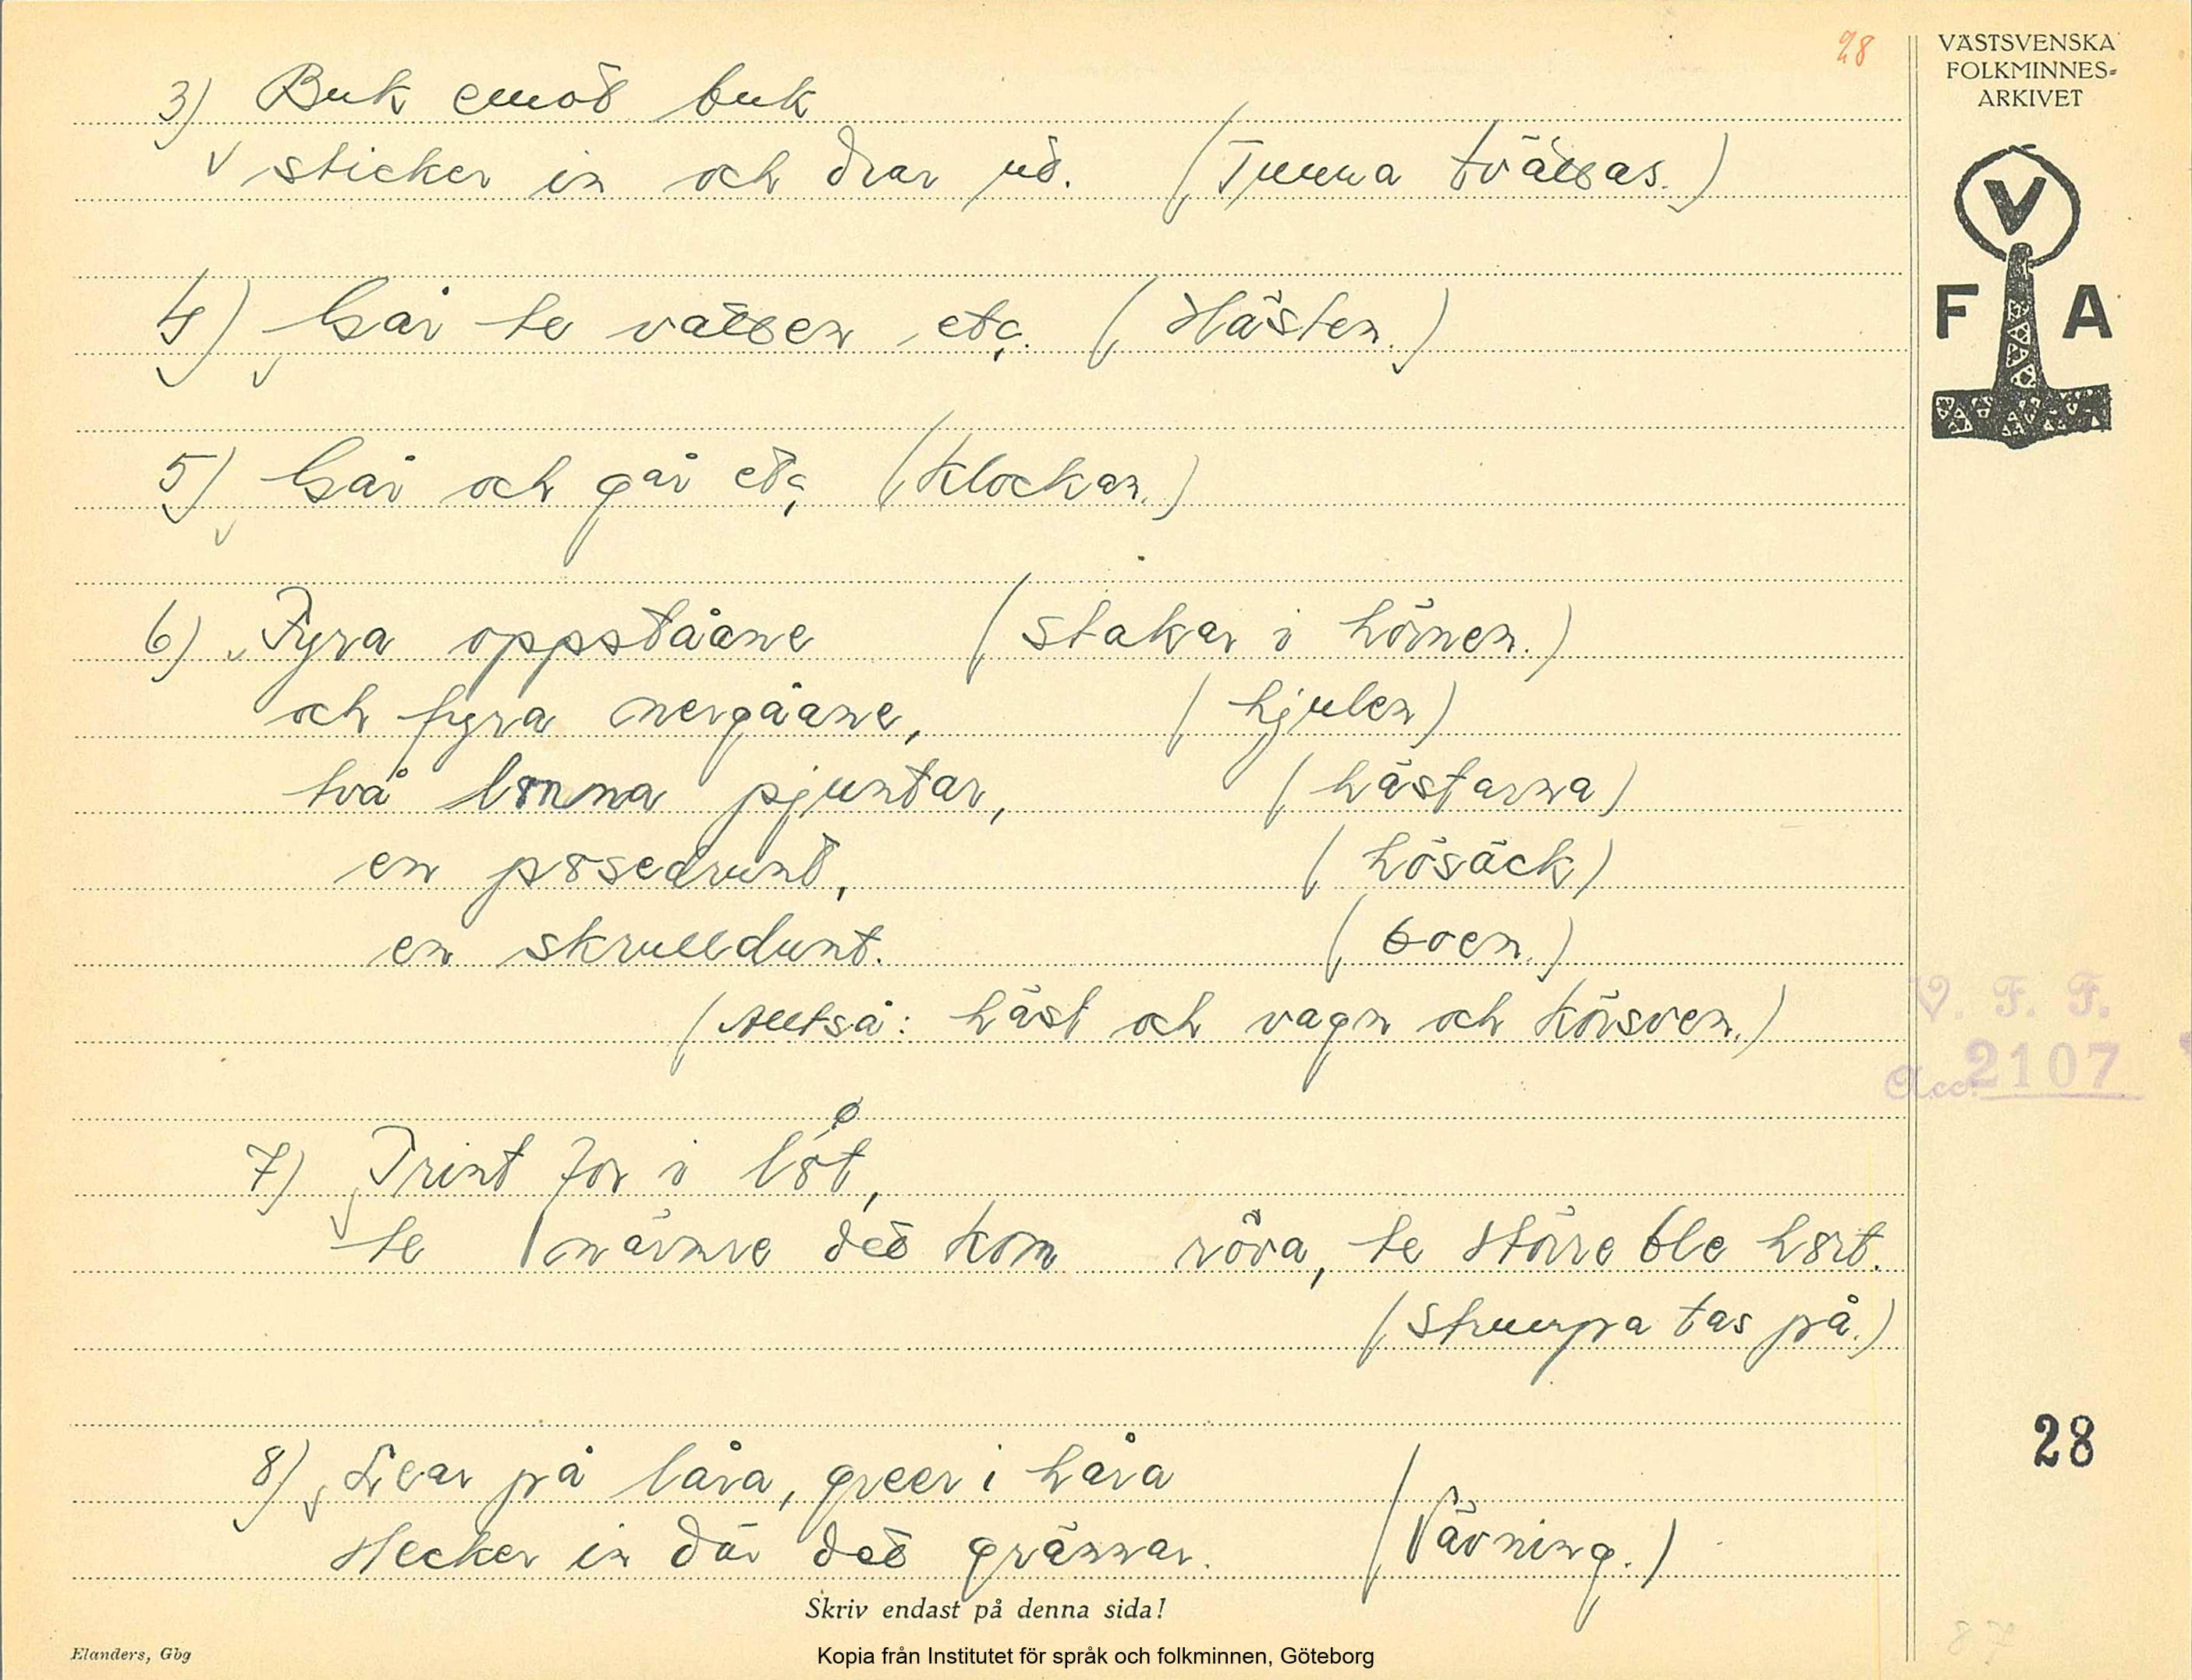 28
VÄSTSVENSKA
FOLKMINNES-
ARKIVET
V
F A
3) Buk emot buk
sticker in och drar ud. (Tunna tvättas.)
4) Går te vatten etc. (Hästen.)
5) Går och går etc (Klockan.)
6) Fyra oppståane (Stakar i hörnen.)
och fyra nergåane, (hjulen)
två lonna pjuntar, (hästarna)
en posedrunt, (hösäck)
en skrulldunt. (boen.)
(Alltså: häst och vagn och körsven.)
V. F. F.
Acc. 2107
7) Trint for i löt,
te närmre det kom röva, te större ble hört.
(Strumpa tas på.)
28
8) Lear på låra, greer i håra
Stecker in där det grännar. (Vävning.)
Skriv endast på denna sida!
Elanders, Gbg
Kopia från Institutet för språk och folkminnen, Göteborg